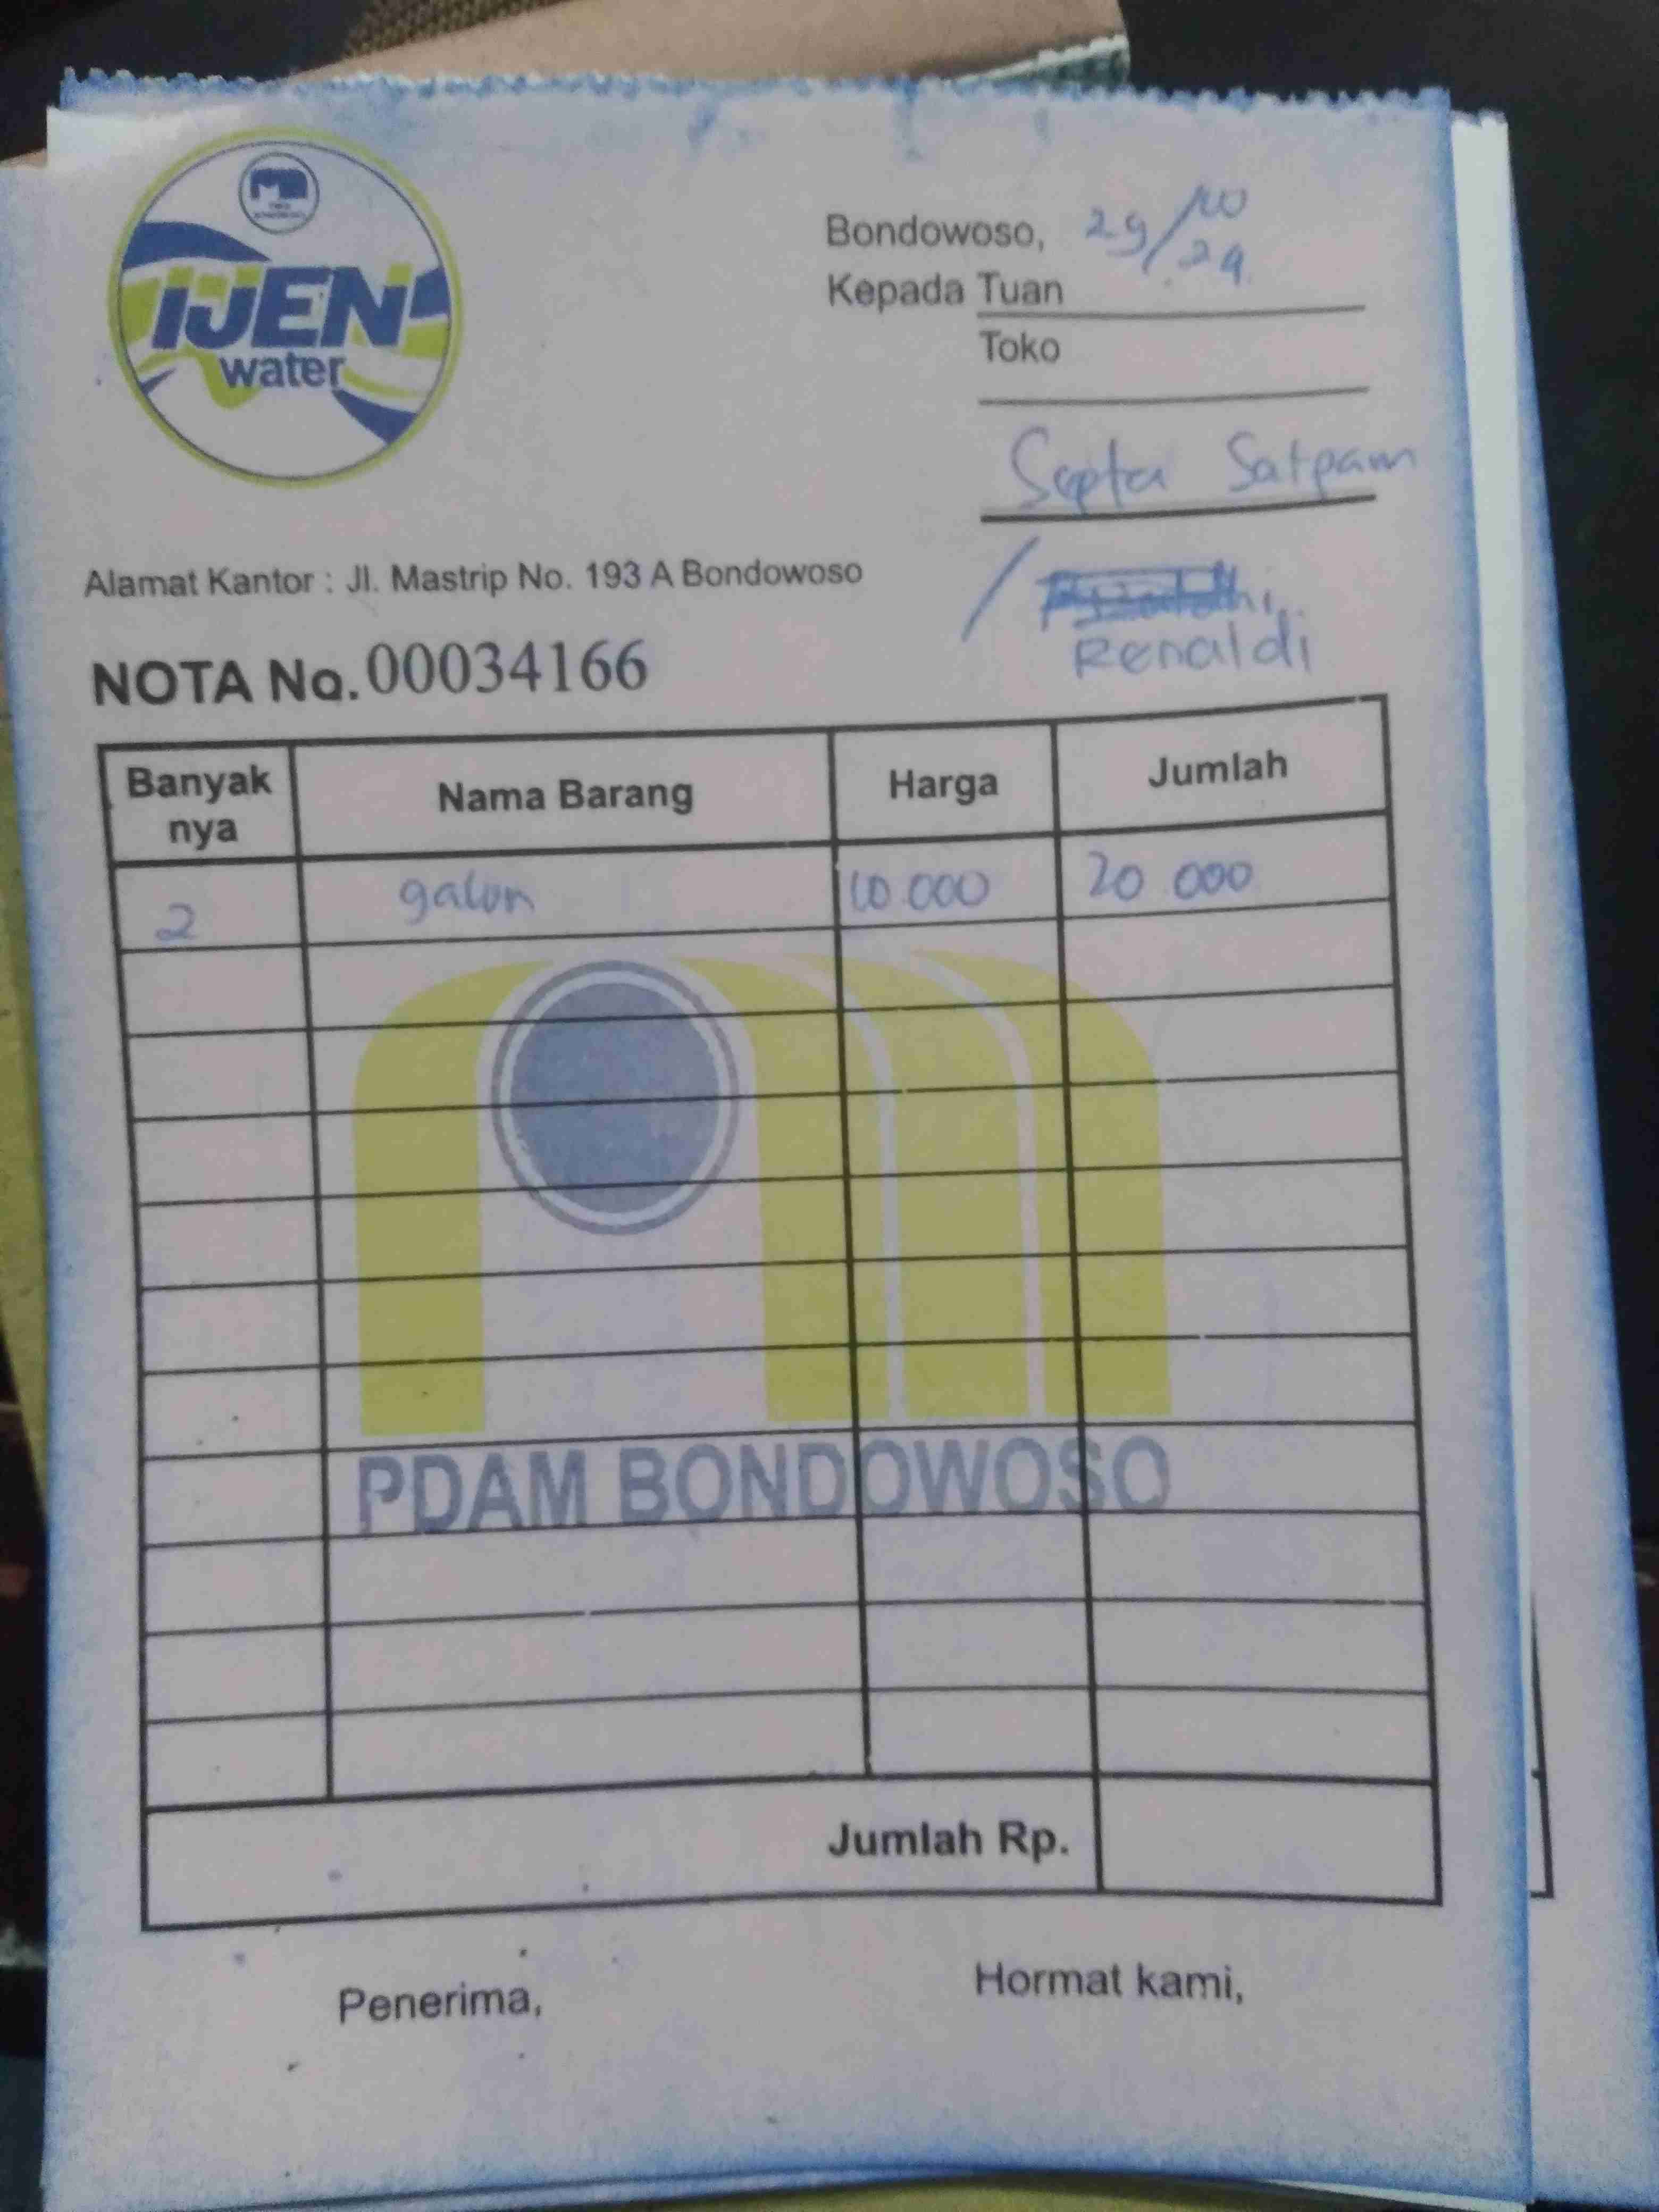 IJEN
water
Bondowoso, 29/10
24
Kepada Tuan
Toko
Septa Satpam
/
Renaldi
Alamat Kantor : Jl. Mastrip No. 193 A Bondowoso
NOTA No. 00034166
Banyak nya Nama Barang Harga Jumlah
2 galon 10.000 20 000
PDAM BONDOWOSO
Jumlah Rp.
Penerima, Hormat kami,